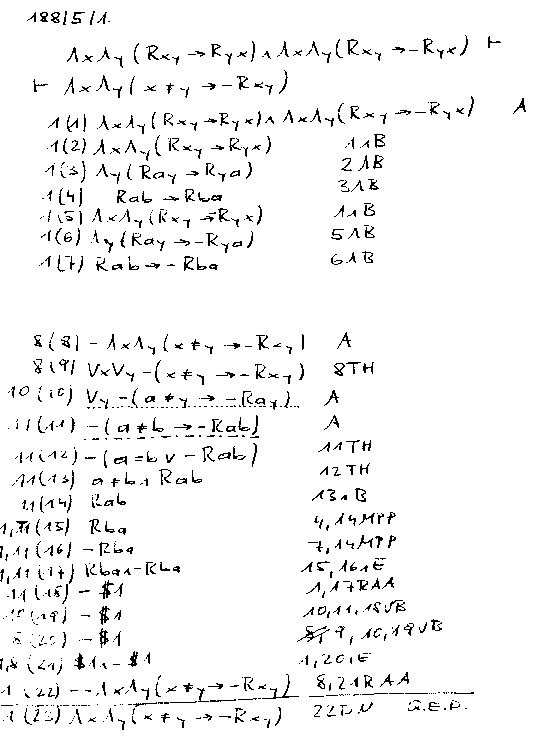 188/5/1.
ΛxΛy(Rxy→Ryx)∧ΛxΛy(Rxy→-Ryx) ⊢
⊢ ΛxΛy(x≠y→-Rxy)
1(1) ΛxΛy(Rxy→Ryx)∧ΛxΛy(Rxy→-Ryx) A
1(2) ΛxΛy(Rxy→Ryx) 1∧B
1(3) Λy(Ray→Rya) 2ΛB
1(4) Rab→Rba 3ΛB
1(5) ΛxΛy(Rxy→Ryx) 1∧B
1(6) Λy(Ray→-Rya) 5ΛB
1(7) Rab→-Rba 6ΛB
8(8) -ΛxΛy(x≠y→-Rxy) A
8(9) VxVy-(x≠y→-Rxy) 8TH
10(10) Vy-(a≠y→-Ray) A
11(11) -(a≠b→-Rab) A
11(12) -(a=b∨-Rab) 11TH
11(13) a≠b∧Rab 12TH
11(14) Rab 13∧B
1,11(15) Rba 4,14MPP
1,11(16) -Rba 7,14MPP
1,11(17) Rba∧-Rba 15,16∧E
11(18) -$1 1,17RAA
10(19) -$1 10,11,18VB
8(20) -$1 9,10,19VB
1,8(21) $1∧-$1 1,20∧E
1(22) --ΛxΛy(x≠y→-Rxy) 8,21RAA
1(23) ΛxΛy(x≠y→-Rxy) 22DN Q.E.D.